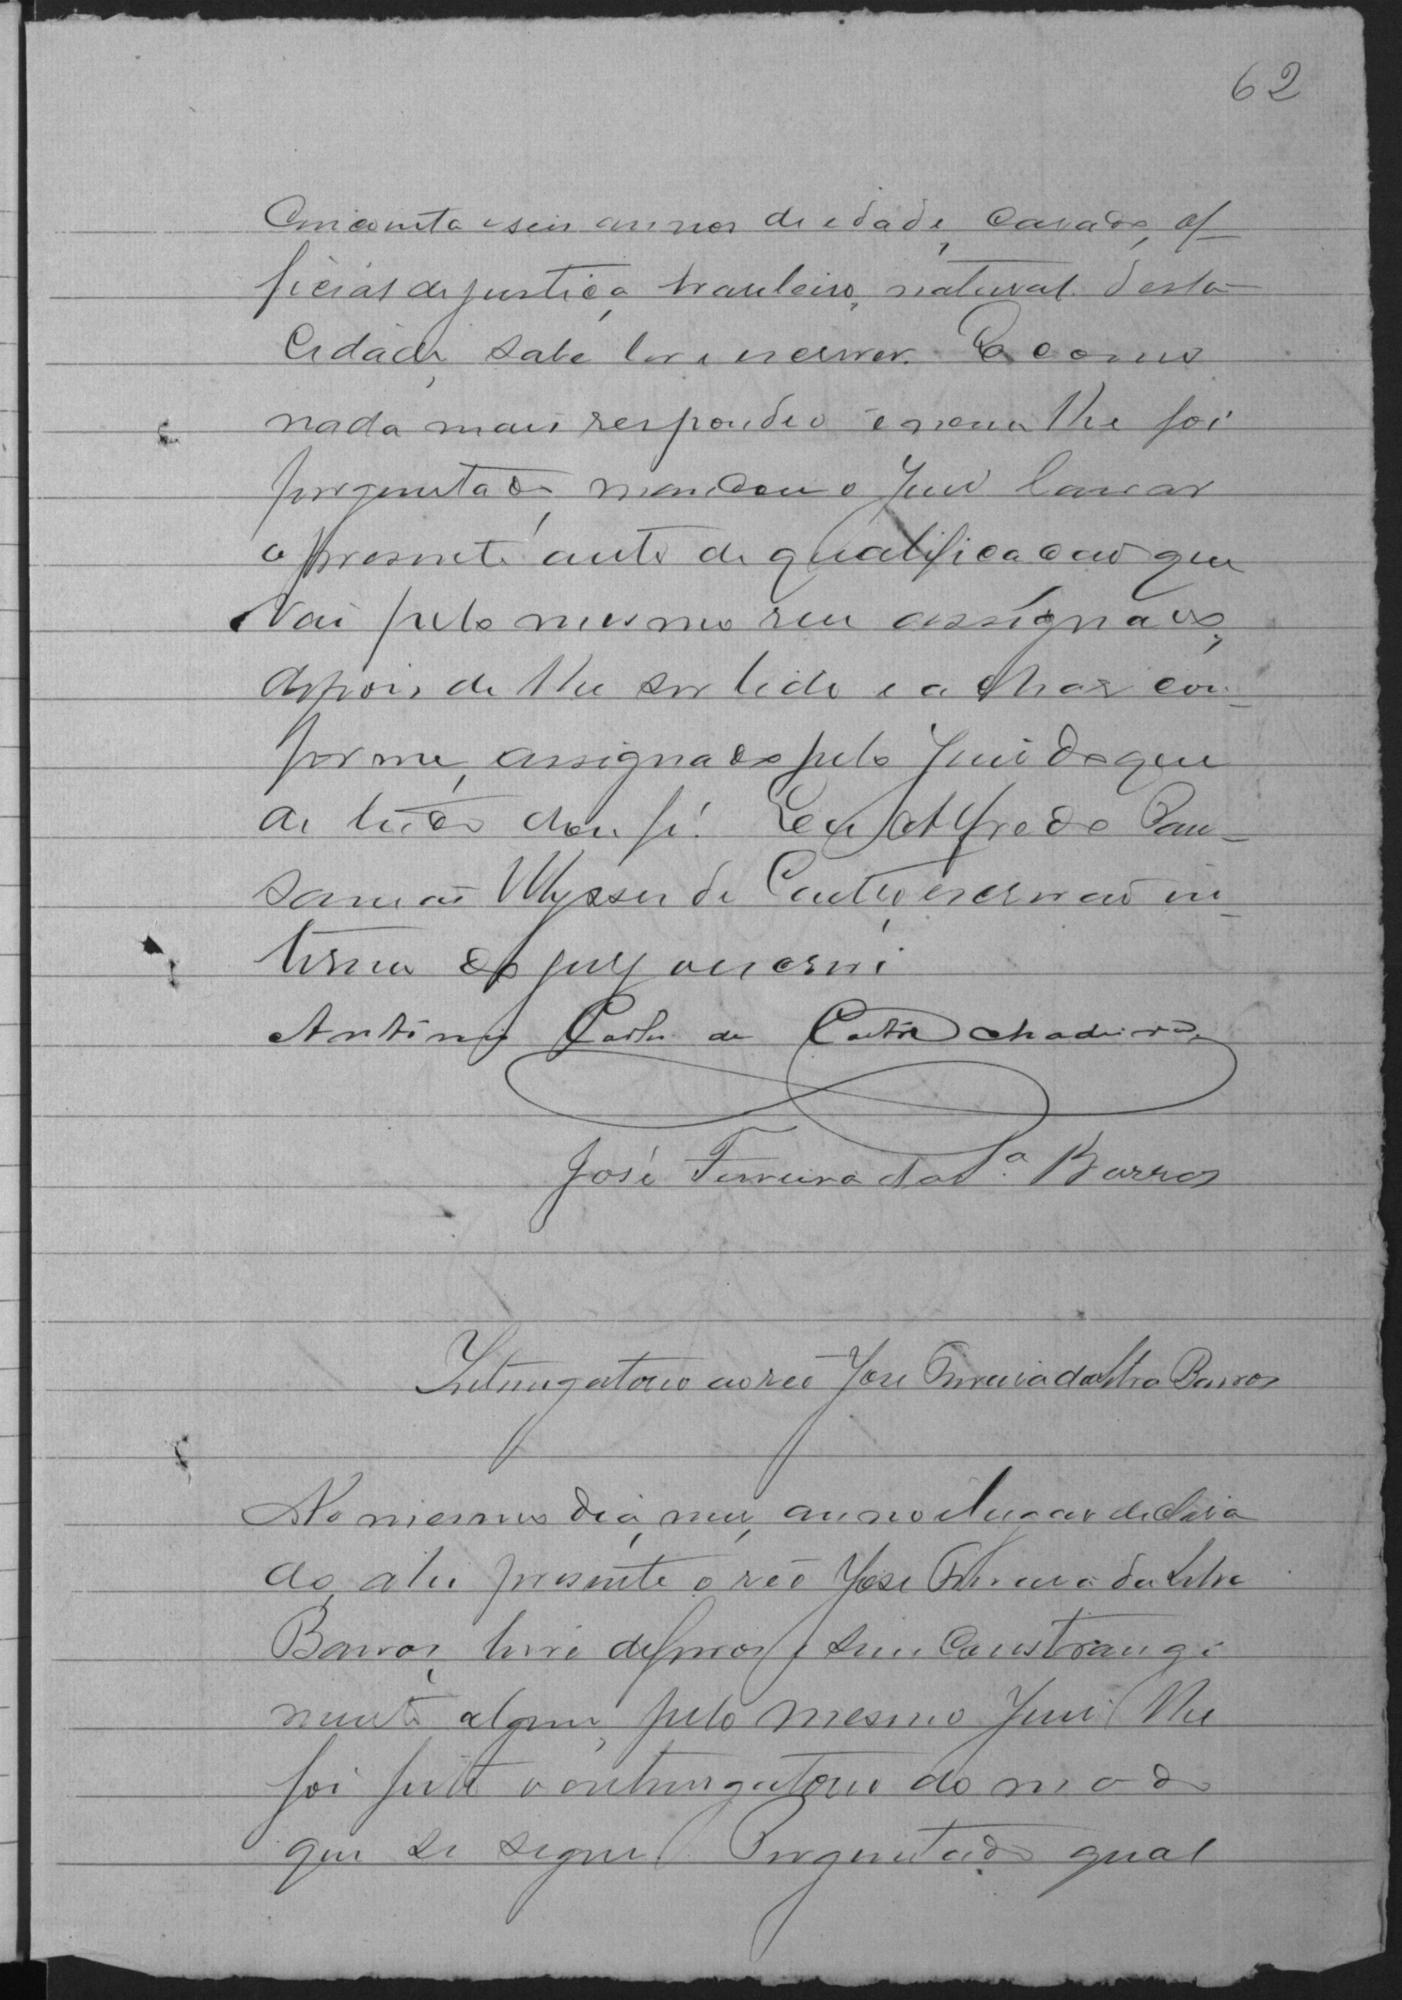 62
Cincoenta e seis annos de idade, casado, of-
ficial de justiça, brasileiro, natural desta
Cidade, sabe ler e escrever. E como
nada mais respondeo e nem lhe foi
perguntado, mandou o Juiz lavrar
o presente auto de qualificacao que
vai pelo mesmo reu assignado,
depois de lhe ser lido e achar con-
forme, assignado pelo Juiz do que
de tudo dou fé. Eu Alfredo Pau-
Ulysses de Castro escrivaõ in-
terino do jury o escrevi
Antonio Carlos de Castro
José Ferreira da S.ª Barros
Interrogatorio ao réo José Ferreira da Silva Barros
No mesmo dia, mez, anno e lugar declara
do, ahi presente o réo José Ferreira da Silva
Barros, livre de ferros e sem constrangi
mento algum, pelo mesmo Juiz lhe
foi feito o interrogatorio do modo
que se segue. Perguntado qual